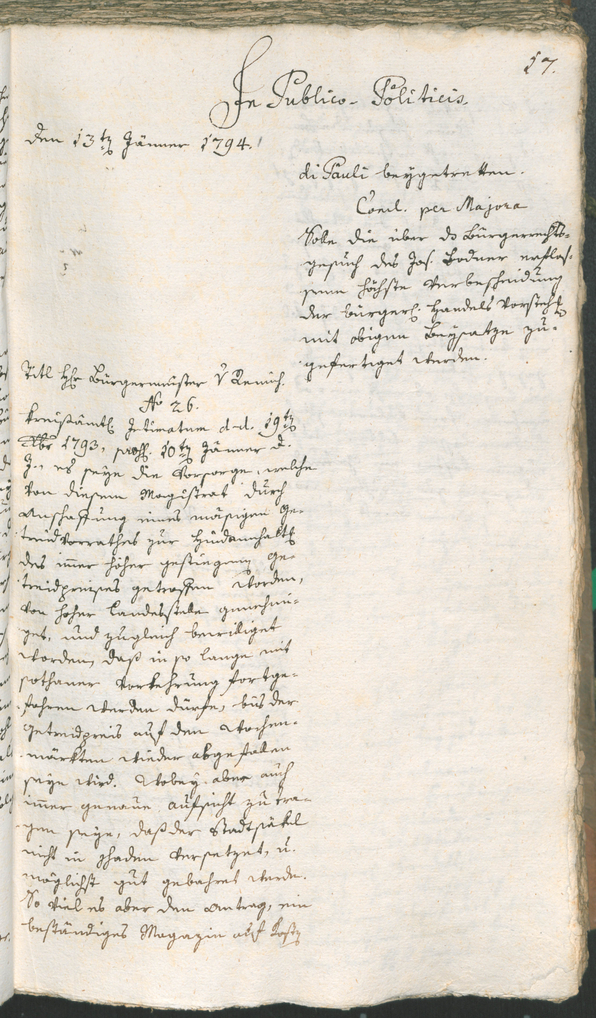 17.
In Publico-Politicis.
den 13ten Jänner 1794.
di Pauli beygetretten.
Concl. per Majora
Solle die über das Bürgerrechts-
gesuch des Jos. Bodner erflos-
sene höchste Verbescheidung
der bürgerl. Handels Vorsteh
mit obigem Beysatze zu-
gefertiget werden.
Titl Hr Bürgermeister v Remich.
No 26.
Kreisämtl. Intimatum d.d. 19ten
Xber 1793, 10ten Jänner d.
J., es seye die Vorsorge, welche
von diesem Magistrat durch
Anschaffung eines mäsigen Ge-
treidvorrathes zur Hindannhalt
des immer höher gestiegenen Ge-
treidpreises getroffen worden,
von hoher Landesstelle genehmi-
get, und zugleich bewilliget
worden, daß in so lange mit
sothaner Vorkehrung fortge-
fahren werden dürfe, bis der
Getreidpreis auf den Wochen-
märkten wieder abgefallen
seyn wird. Wobey aber auch
immer genaue Aufsicht zu tra-
gen seye, daß der Stadtsäkel
nicht in Schaden versetzet, u.
möglichst gut gebahret werde.
So viel es aber den Antrag, ein
beständiges Magazin auf